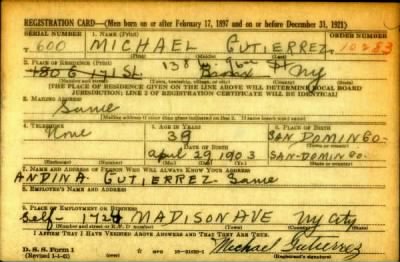 REGISTRATION CARD—(Men born on or after February 17, 1897 and on or before December 31, 1921)
SERIAL NUMBER 1. NAME (Print) ORDER NUMBER
T. 600 MICHAEL GUTIERREZ 10283
(First) (Middle) (Last)
138 W. St
2. PLACE OF RESIDENCE (Print)
180 E 171 St. Bronx NY
(Number and street) (Town, township, village, or city) (County) (State)
[THE PLACE OF RESIDENCE GIVEN ON THE LINE ABOVE WILL DETERMINE LOCAL BOARD
JURISDICTION; LINE 2 OF REGISTRATION CERTIFICATE WILL BE IDENTICAL]
3. MAILING ADDRESS
Same
4. TELEPHONE 5. AGE IN YEARS 6. PLACE OF BIRTH
None 39 SAN DOMINGO
DATE OF BIRTH
April 29 1903 SAN-DOMINGO
(Exchange) (Number) (Mo.) (Day) (Yr.) (State or country)
7. NAME AND ADDRESS OF PERSON WHO WILL ALWAYS KNOW YOUR ADDRESS
ANDINA GUTIERREZ- Same
8. EMPLOYER'S NAME AND ADDRESS
9. PLACE OF EMPLOYMENT OR BUSINESS
Self- 1724 MADISON AVE NY City
(Number and street or R. F. D. number) (Town) (County) (State)
I AFFIRM THAT I HAVE VERIFIED ABOVE ANSWERS AND THAT THEY ARE TRUE.
D. S. S. Form 1
Michael Gutierrez
(Registrant's signature)